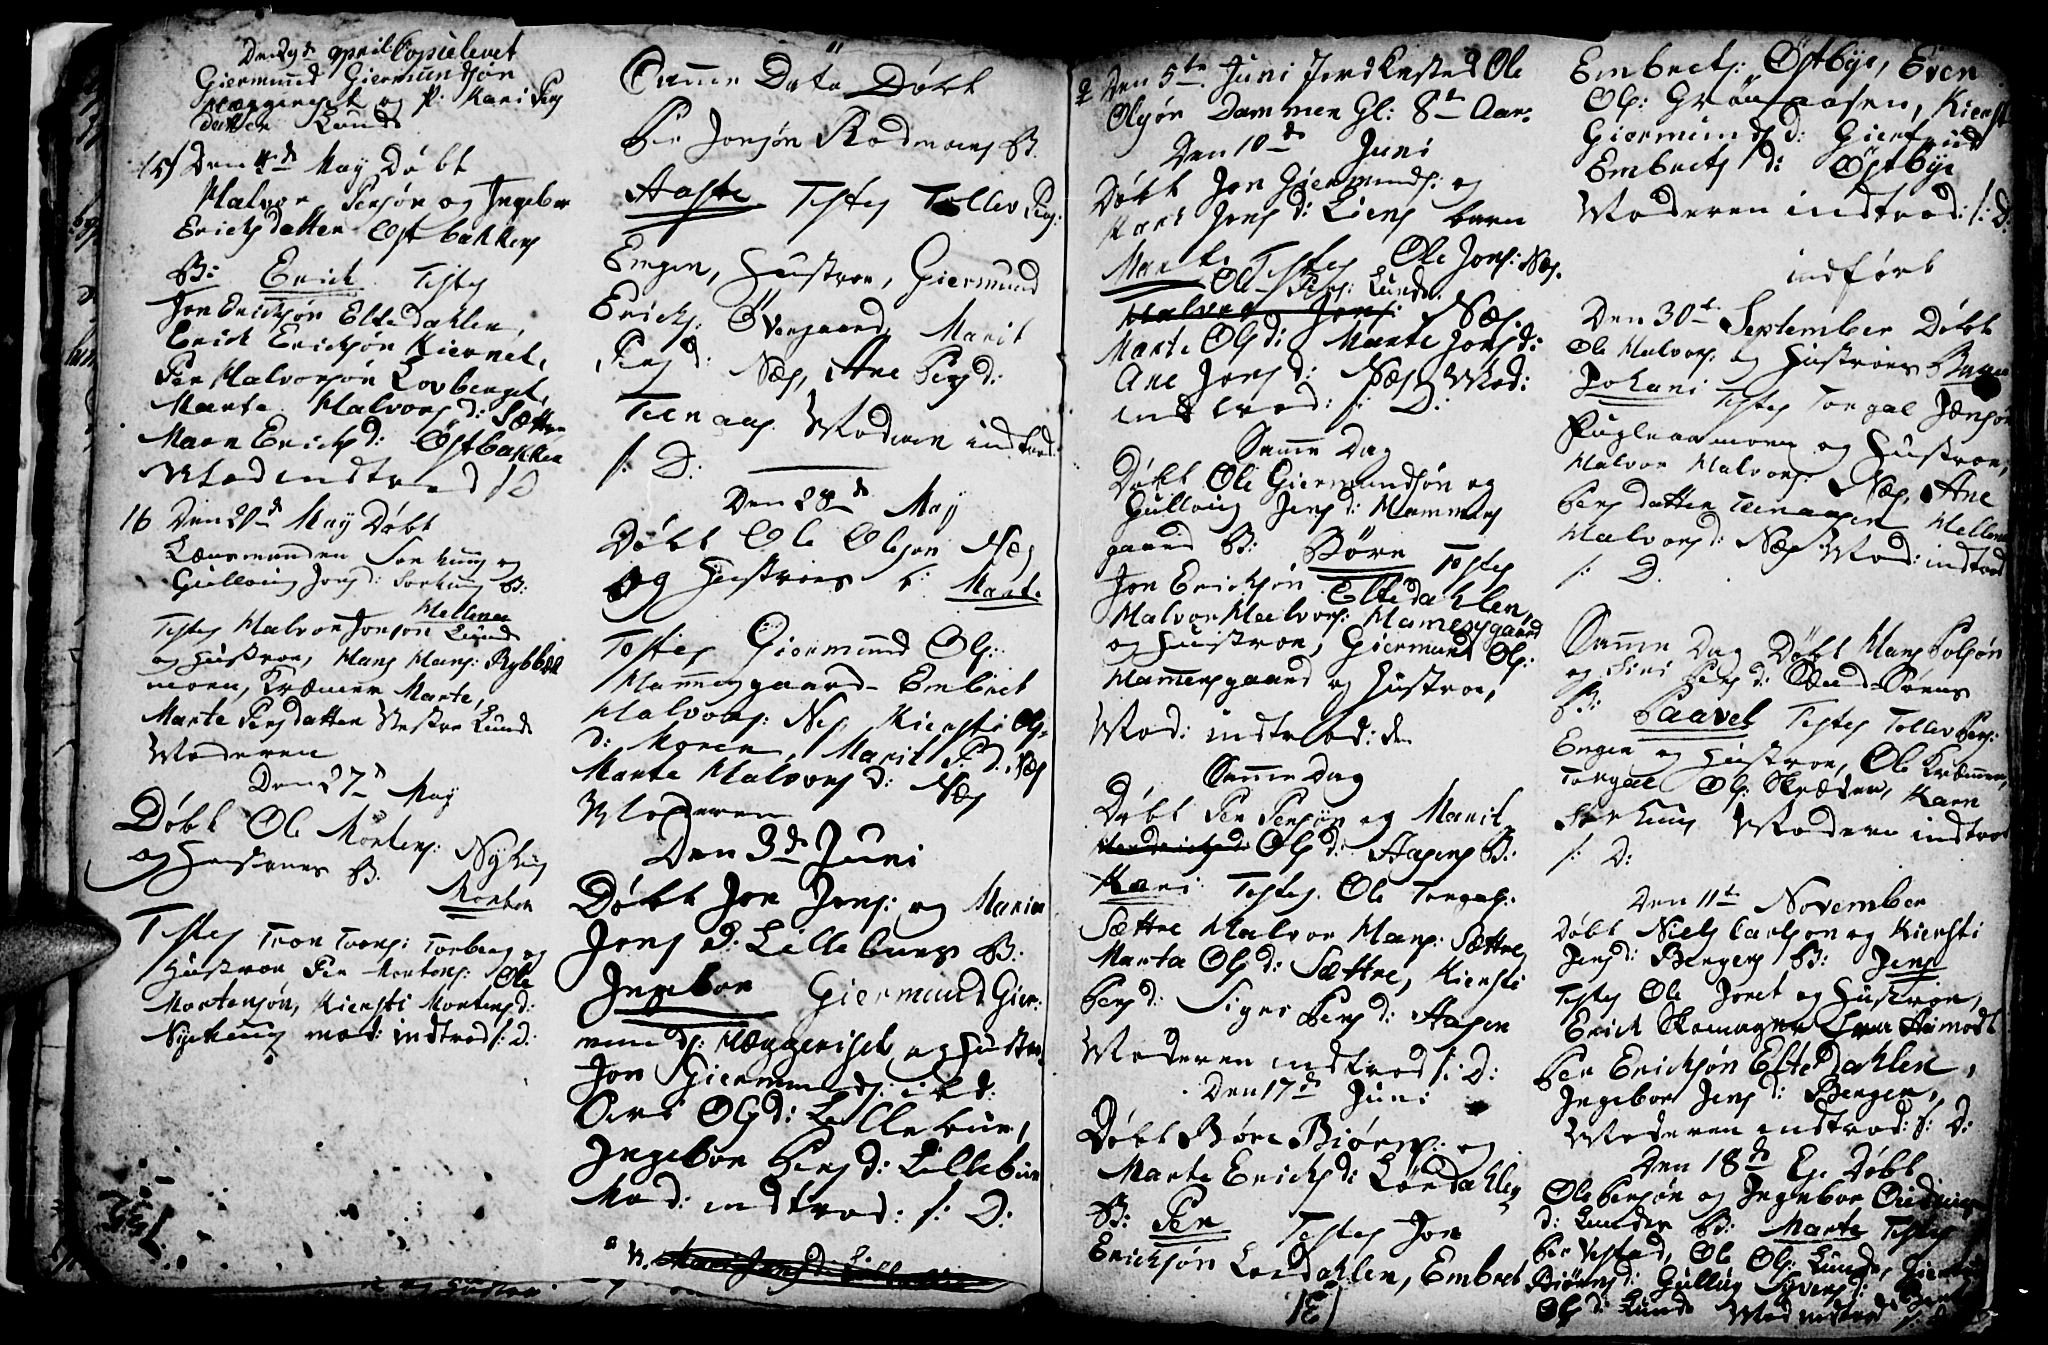 Den 29de April Copuleret
Giermund Giermundsøn
Hæggeriset og P. Kari Pers
datter Lund
15/ Den 4de May Døbt
Halvor Persøn og Ingebor
Ericksdatter Østbakkens
B: Erick Testes
Jon Ericksøn Eltedahlen,
Erick Ericksøn Kiernet,
Per Halvorsøn Lovberget,
Marte Halvors d: Sætten
Maren Ericks d: Østbakken
Mod indtrod s: D
16 Den 20de May Døbt
Lænsmanden Sorknug og
Gullouig Jons d: Sorknug B:
Hellena
Testes Halvor Jonsøn Lund
og Hustroe, Hans Hans:
moen, Kræmer Marte,
Marte Persdatter Lund
Moderen
Den 27de May
Døbt Ole Mortens: Nyhuus
og Hustroes B:
Morten
Testes Tron Trons: Torberg og
Hustroe Per Mortens: Ole
Mortensøn, Kiersti Mortens d:
Nyehuus mod: indtrod s: D:
Samme Dato Døbt
Per Jonsøn Rødmoens B.
Aaste Testes Tollev Pers:
Engen, Hustroe, Giermund
Ericks: Øvergaard, Marit
Pers d: Næs, Ane Pers d:
Teenaas Moderen indtrod:
s: D:
Den 28de May
Døbt Ole Olsøn Næs
og Hustroes b: Marte
Testes Giermund Ols:
Hammersgaard Embret
Halvors: Nes Kiersti Ols
d: Moren, Marit P. D. Næs
Marte Halvors d: Næs
Moderen
Den 3de Juni
Døbt Jon Jons: og Marie
Jons d: Lilleburs B:
Ingebor Giermund Gier:
munds: Hæggeriset og Hustroe
Jon Giermunds: ibd:
Siri Ols d: Lillebur,
Ingebor Pers d: Lillebur
Mod: indtrod: s: D:
Den 5te Juni Jordkasted Ole
Olsøn Dammen Gl: 8te Aar:
Den 10de Juni
Døbt Jon Giermunds: og
Kari Jons d: Liens barn
Marte Testes Ole Jons: Næs.
Ole Pers: Lunde.
Halvor Jons: Næs.
Marte Ols d: Marte Jons d:
Ane Jons d: Næs Mod:
indtrod: s: D:
Samme Dag
Døbt Ole Giermundsøn og
Gullouig Jens d: Hammers
gaard B: Børe Testes
Jon Ericksøn Eltedahlen,
Halvor Halvors: Hamersgaard
og Hustroe, Giermund Ols:
Hammersgaard og Hustroe,
Mod: indtrod: den
Samme Dag
Døbt Per Persøn og Marit
Ols d: Aasens B:
Kari Testes Ole Torgals:
Sættre Halvor Hans: Sættre,
Marta Ols d: Sættre, Kiersti
Pers d: Signe Pers d: Aasen
Moderen indtrod s: D:
Den 17de Juni
Døbt Børe Biørns: og
Marte Ericks d: Lørdahlens
B: Per Testes Jon
Ericksøn Lørdahlen, Embret
Embrets: Østbye, Even
Ols: Grønaasen, Kierst
Giermunds d: Giertrud
Embrets d: Østbye
Moderen indtrod: s: D:
indført
Den 30te September Døbt
Ole Halvors: og Hustroes Barn
Johani Testes Torgal Jensøn
Kuglemoen og Hustroe,
Halvor Halvors: Næs, Ane
Persdatter Teenaasen Hellena
Halvors d: Næs Mod: indtrod
s: D.
Samme Dag Døbt Hans Polsøn
og Siri Pers d: Sund-Søens
B: Paavel Testes Tollev Pers:
Engen og Hustroe, Ole Kræmer,
Torgal Ols: Skræder, Karn
Sorknug Moderen indtrod
s: D:
Den 11te November
Døbt Niels Carlsøn og Kiersti
Jens d: Bergens B: Jens
Testes Ole Joret og Hustroe,
Erick Skomager Aamodt
Per Ericksøn Eltedahlen,
Ingebor Jens d: Bergen,
Moderen indtrod: s: D:
Den 18de Ej. Døbt
Ole Persøn og Ingebor
d: Lunden B: Marte Testes
Per Vestad, Ole Ols: Lund,
Biørns d: Gullug Syvers d:
Ols d: Lund Mod indtrod s: D